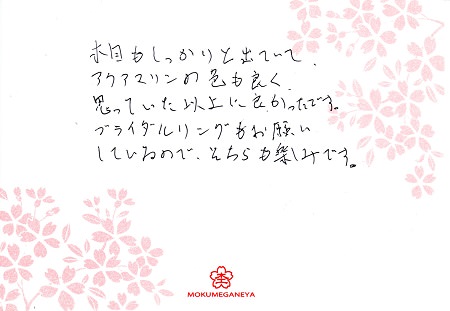 木目もしっかりと出ていて、
アクアマリンの色も良く、
思っていた以上に良かったです。
ブライダルリングもお願い
しているので、そちらも楽しみです。
MOKUMEGANEYA